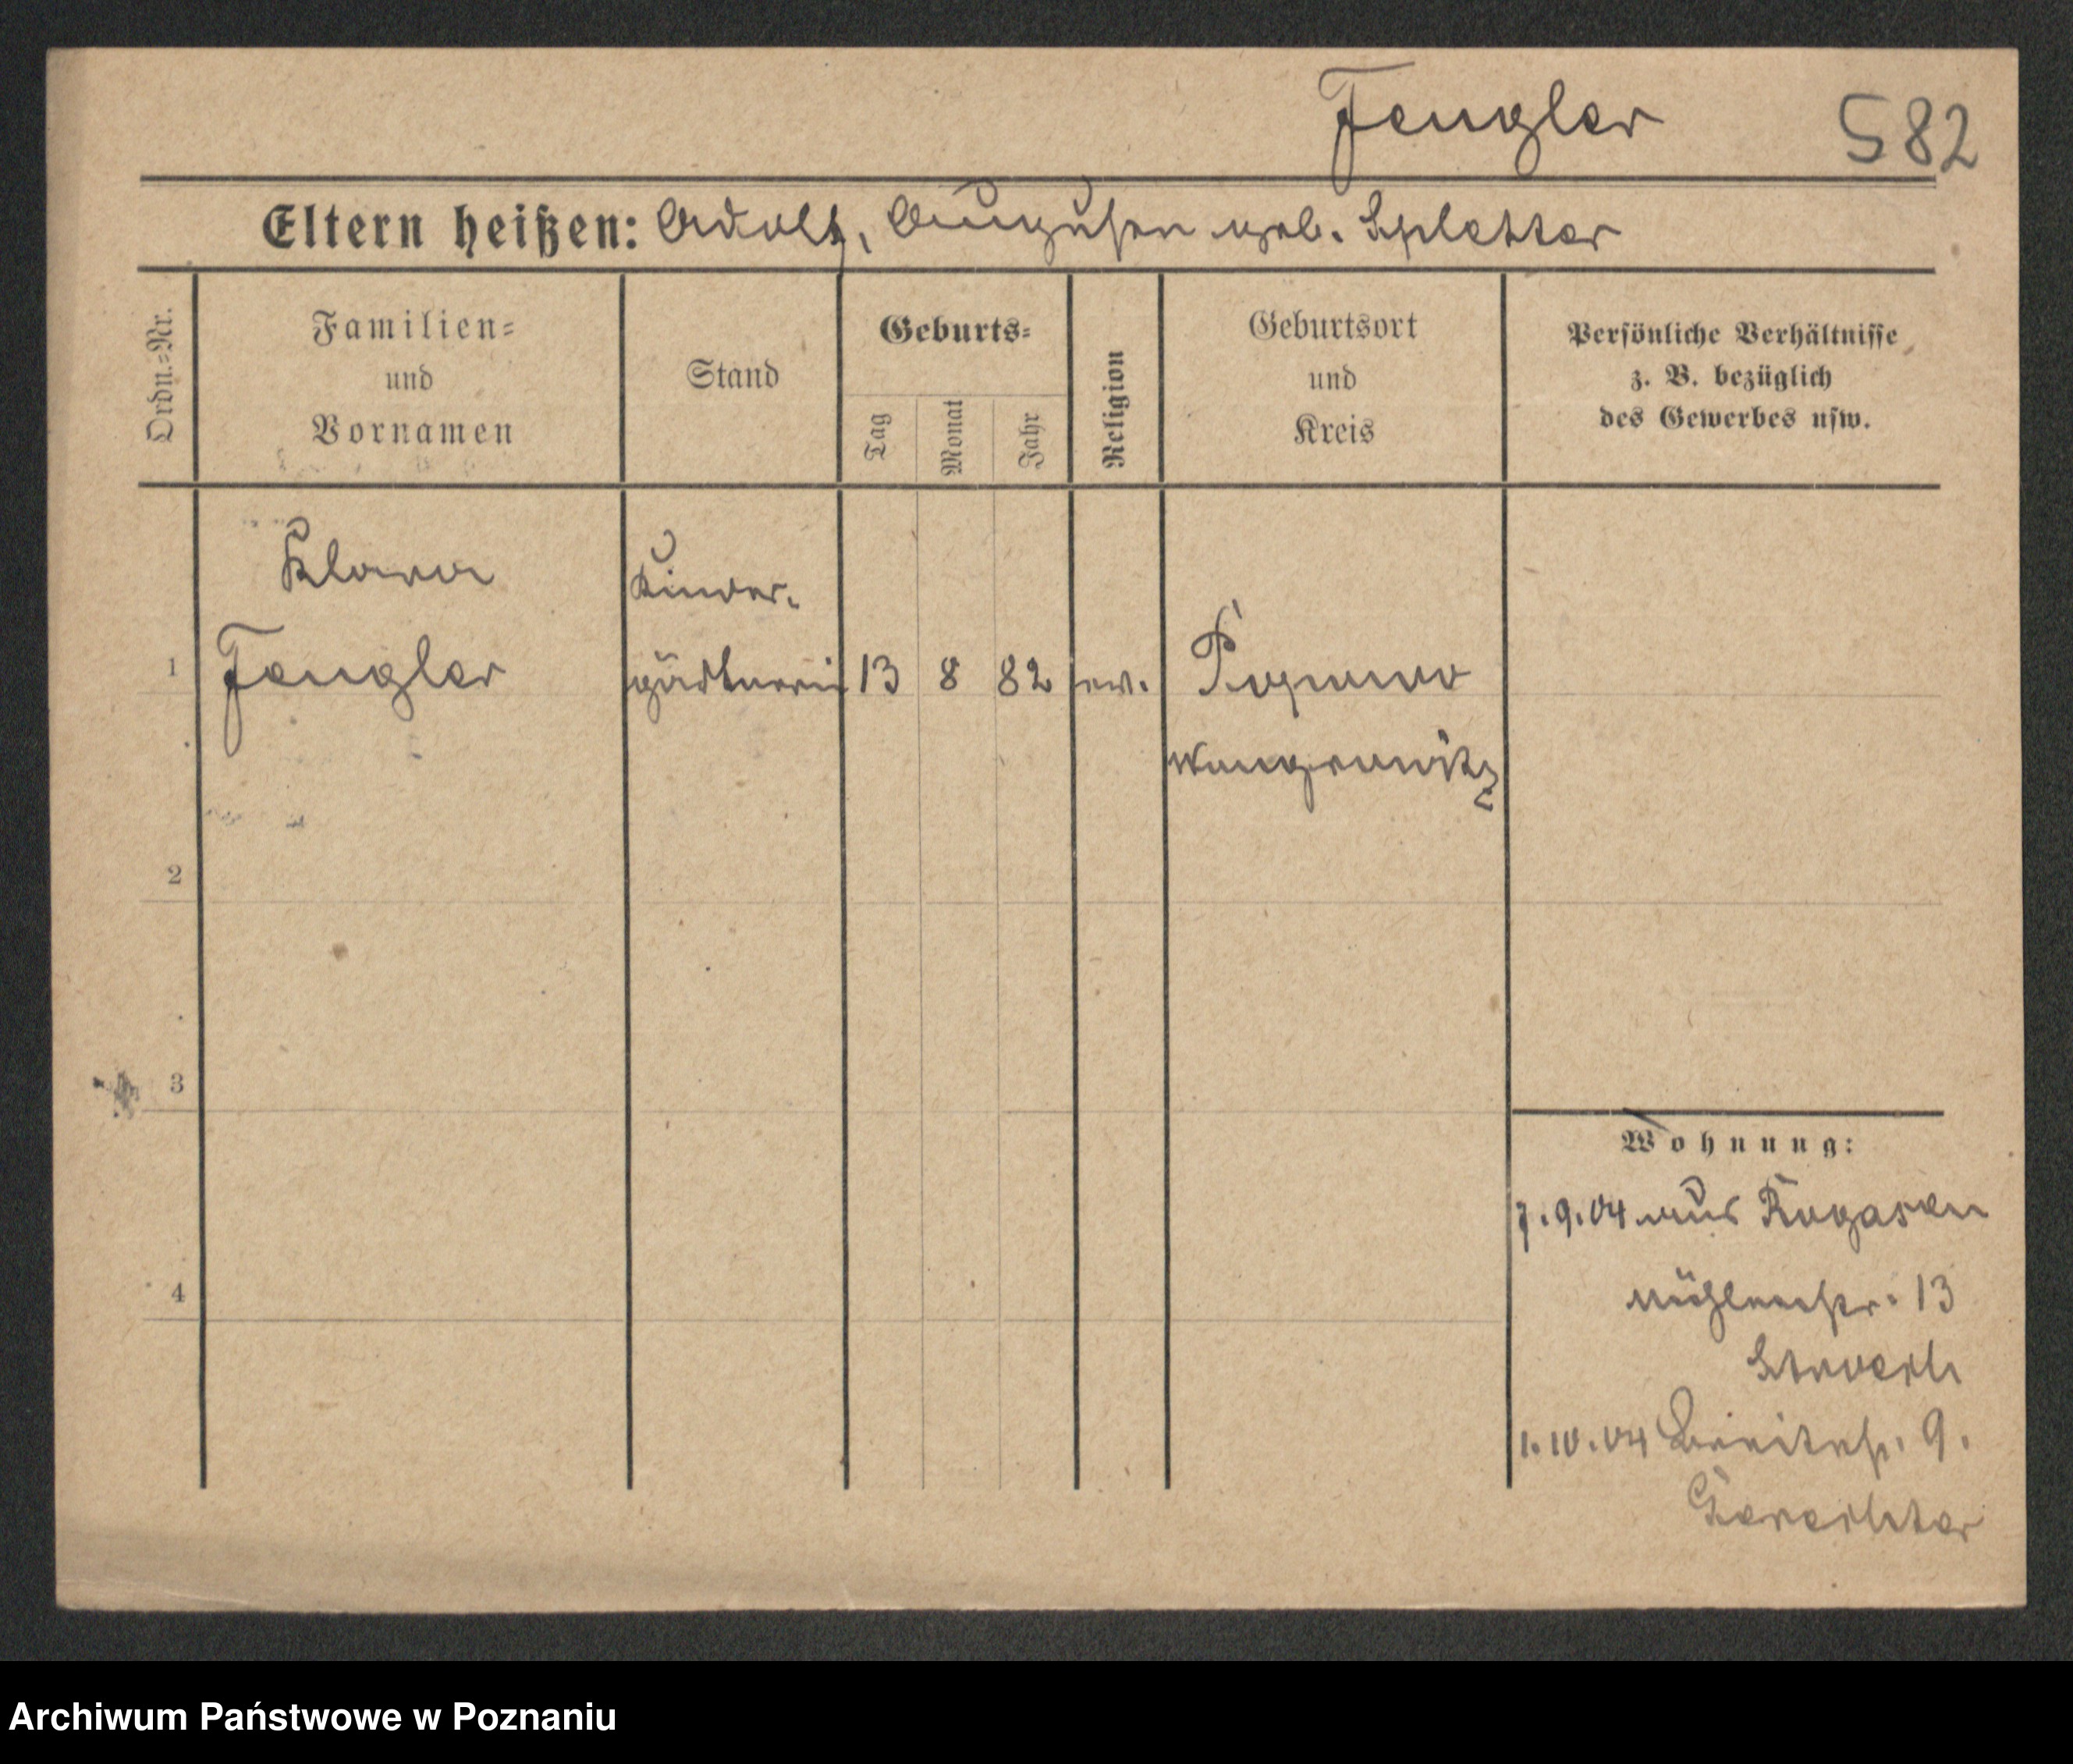 Fengler 582
Eltern heißen: Adolf, Auguste geb. Spletter
Ordn.-Nr.
Familien-
und
Vornamen
Stand
Geburts-
Tag
Monat
Jahr
Religion
Geburtsort
und
Kreis
Persönliche Verhältnisse
z. B. bezüglich
des Gewerbes usw.
Klara
Kinder-
1 Fengler gärtnerin 13 8 82 ev.
Wongrowitz
2
3
4
Wohnung:
7.9.04 aus Rogasen
Mühlenstr. 13
1.10.04 Breitestr. 9.
Archiwum Państwowe w Poznaniu